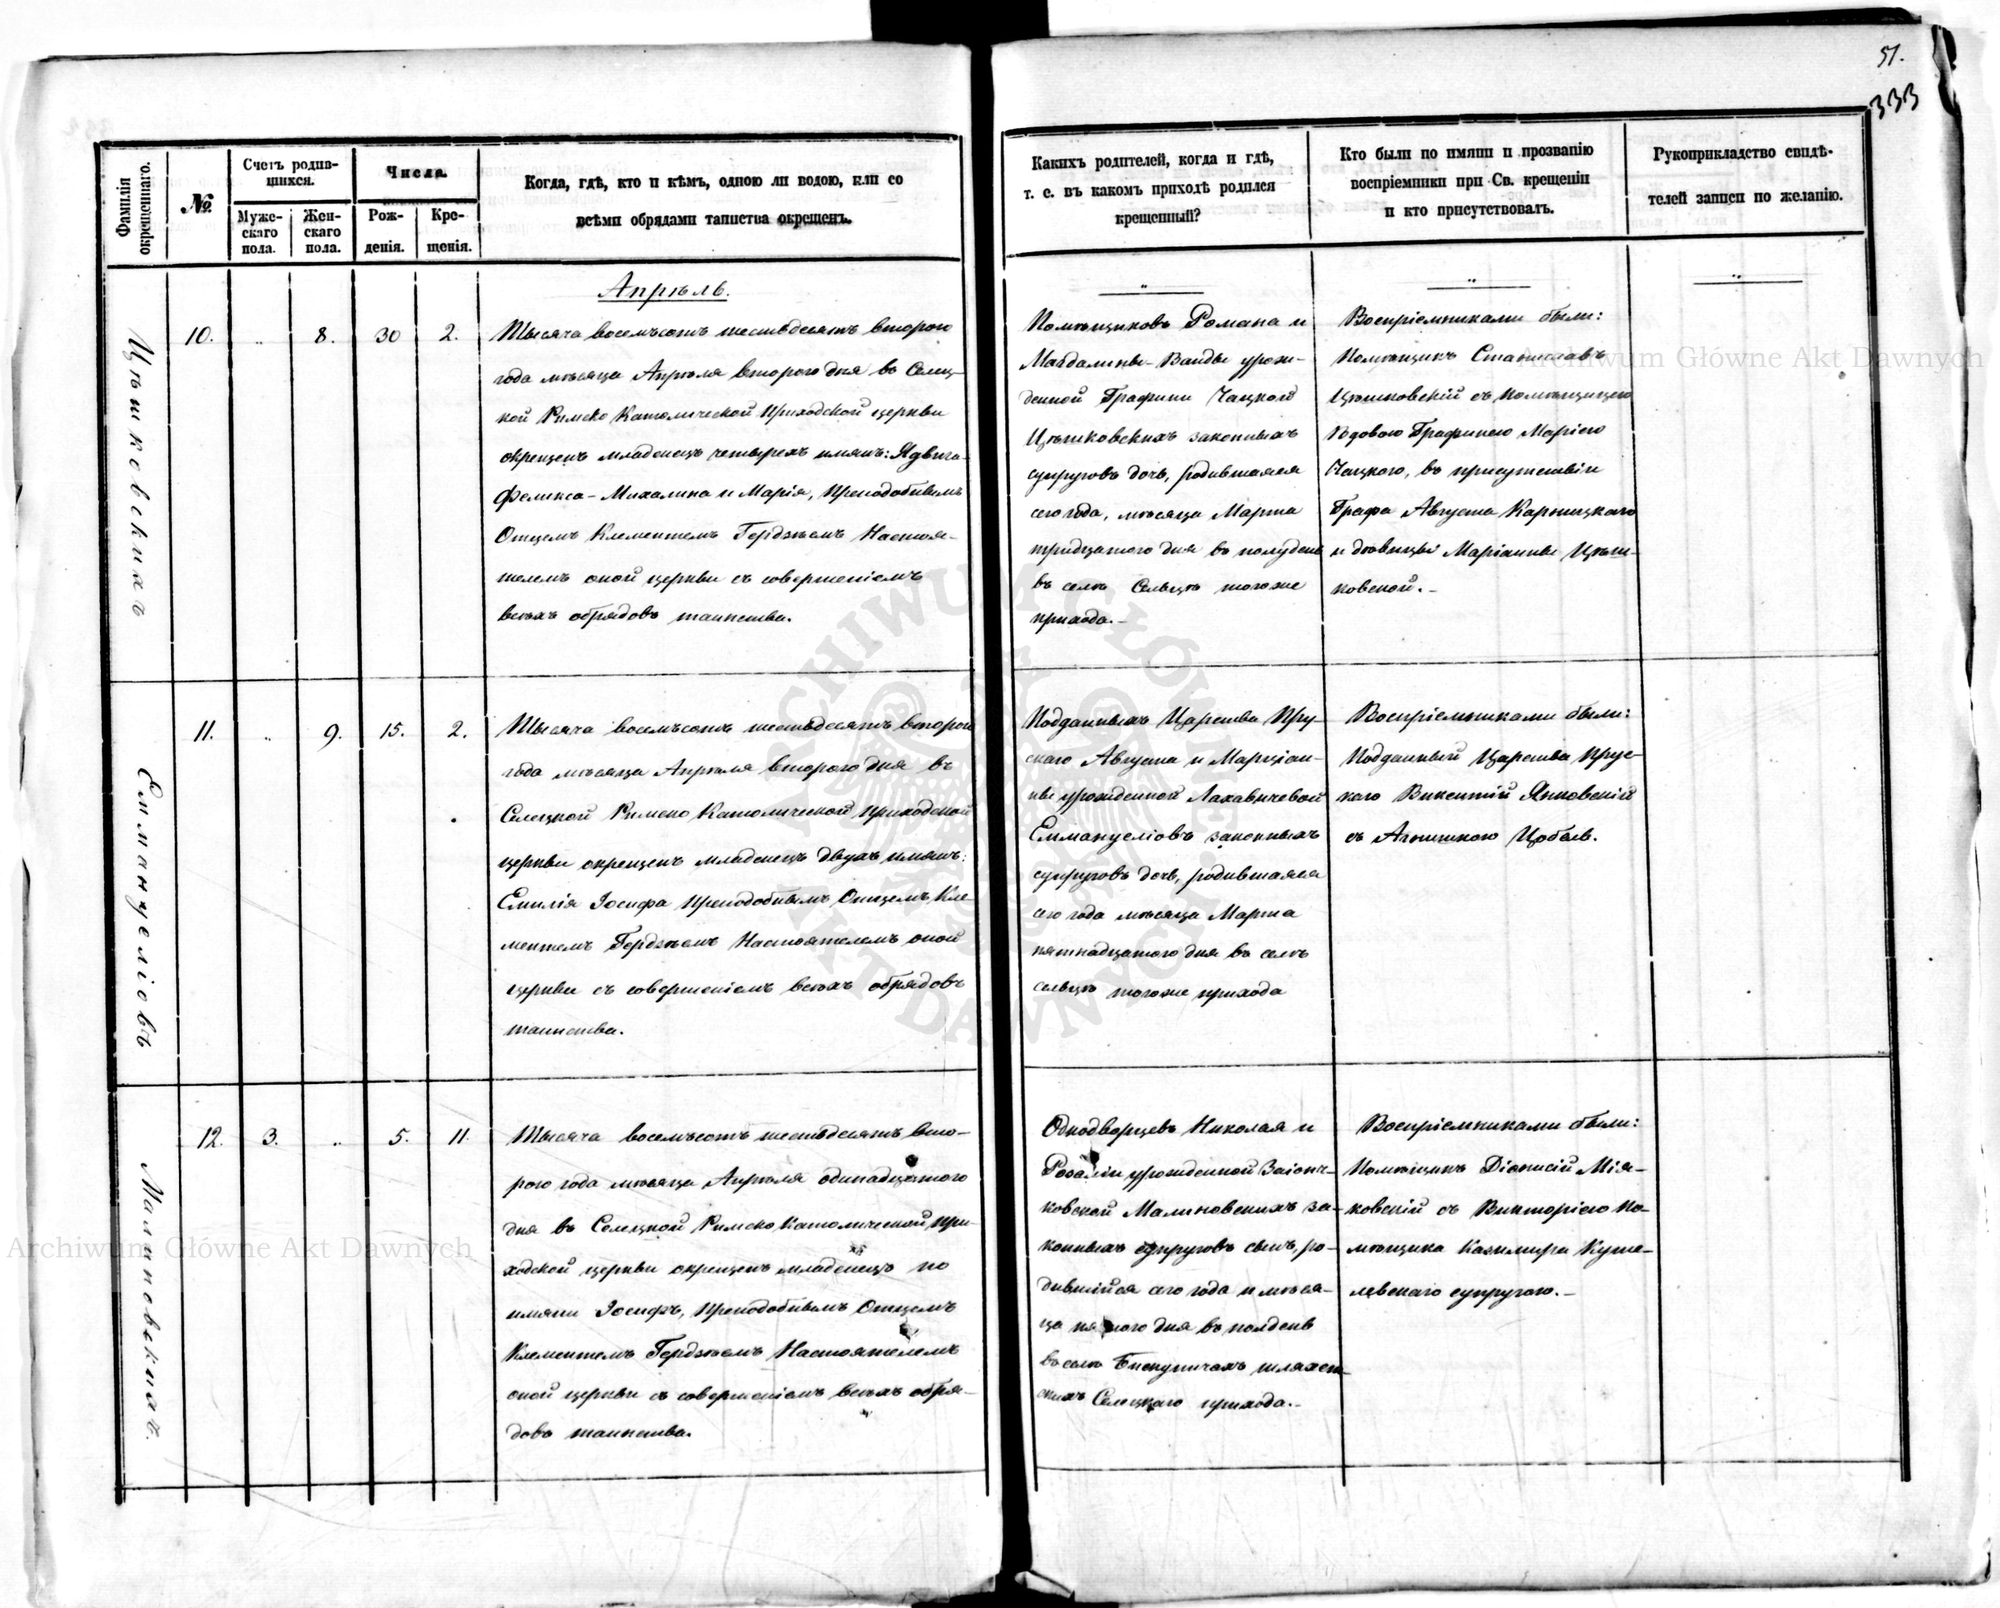 51.
333
Фамилія окрещеннаго.
№
Счетъ родив-
шихся.
Муже-
скаго
пола.
Жен-
скаго
пола.
Числа.
Рож-
денія.
Кре-
щенія.
Когда, гдѣ, кто и кѣмъ, одною ли водою, или со
всѣми обрядами таинства окрещенъ.
Какихъ родителей, когда и гдѣ,
т. е. въ какомъ приходѣ родился
крещенный?
Кто были по имяни и прозванію
воспріемники при Св. крещеніи
и кто присутствовалъ.
Рукоприкладство свидѣ-
телей записи по желанію.
Апрѣль.
Цѣшковскихъ
10.
8.
30
2.
Тысяча восемъсотъ шестьдесятъ второго
года мѣсяца Апрѣля второго дня въ Селец-
кой Римско Католической Приходской церкви
окрещенъ младенецъ четырехъ имянъ: Ядвига
Феликса-Михалина и Марія, Преподобнымъ
Отцемъ Клементемъ Гердзѣемъ Настоя-
телемъ оной церкви съ совершеніемъ
всѣхъ обрядовъ таинства.
Помѣщиковъ Романа и
Магдалины-Ванды урож-
денной Графини Чацкой
Цѣшковскихъ законныхъ
супруговъ дочь, родившаяся
сего года, мѣсяца Марта
тридцатого дня въ полудень
въ селѣ Сельцѣ тогоже
прихода.-
Воспріемниками были:
Помѣщикъ Станиславъ
Цѣшковскій съ Помѣщицею
Вдовою Графинею Маріею
Чацкого, въ присутствіи
Графа Августа Карницкаго
и дѣвицы Маріанны Цѣш-
ковской.-
Еммануеліовъ
11.
9.
15.
2.
Тысяча восемъсотъ шестьдесятъ второго
года мѣсяца Апрѣля второго дня въ
Селецкой Римско Католической Приходской
церкви окрещенъ младенецъ двухъ имянъ:
Емилія Іосифа Преподобнымъ Отцемъ Кле
ментемъ Гердзѣемъ Настоятелемъ оной
церкви съ совершеніемъ всѣхъ обрядовъ
таинства.
Подданныхъ Царства Пру-
скаго Августа и Марціан-
ны урожденной Лахавичевой
Еммануеліовъ законныхъ
супруговъ дочь, родившаяся
сего года мѣсяца Марта
пятнадцатого дня въ селѣ
сельцѣ тогоже прихода
Воспріемниками были:
Подданный Царства Прус-
каго Викентій Янковскій
съ Агнишкою Цобель.
Малиновскихъ.
12.
3.
5.
11.
Тысяча восемъсотъ шестьдесятъ вто-
рого года мѣсяца Апрѣля одинадцатого
дня въ Селецкой Римско Католической При-
ходской церкви окрещенъ младенецъ по
имяни Іосифъ, Преподобнымъ Отцемъ
Клементемъ Гердзѣемъ Настоятелемъ
оной церкви съ совершеніемъ всѣхъ обря-
довъ таинства.
Однодворцевъ Николая и
Розаліи урожденной Заіонч-
ковской Малиновскихъ за-
конныхъ супруговъ сынъ, ро-
дившійся сего года и мѣся-
ца пятого дня въ полдень
въ селѣ Бискупичахъ шляхет-
скихъ Селецкаго прихода.-
Воспріемниками были:
Помѣщикъ Діонисій Мія-
ковскій съ Викторіею По-
мѣщика Казимира Куше-
левскаго супругою.-
Archiwum Główne Akt Dawnych
Archiwum Główne Akt Dawnych
ARCHIWUM GŁÓWNE
AKT DAWNYCH